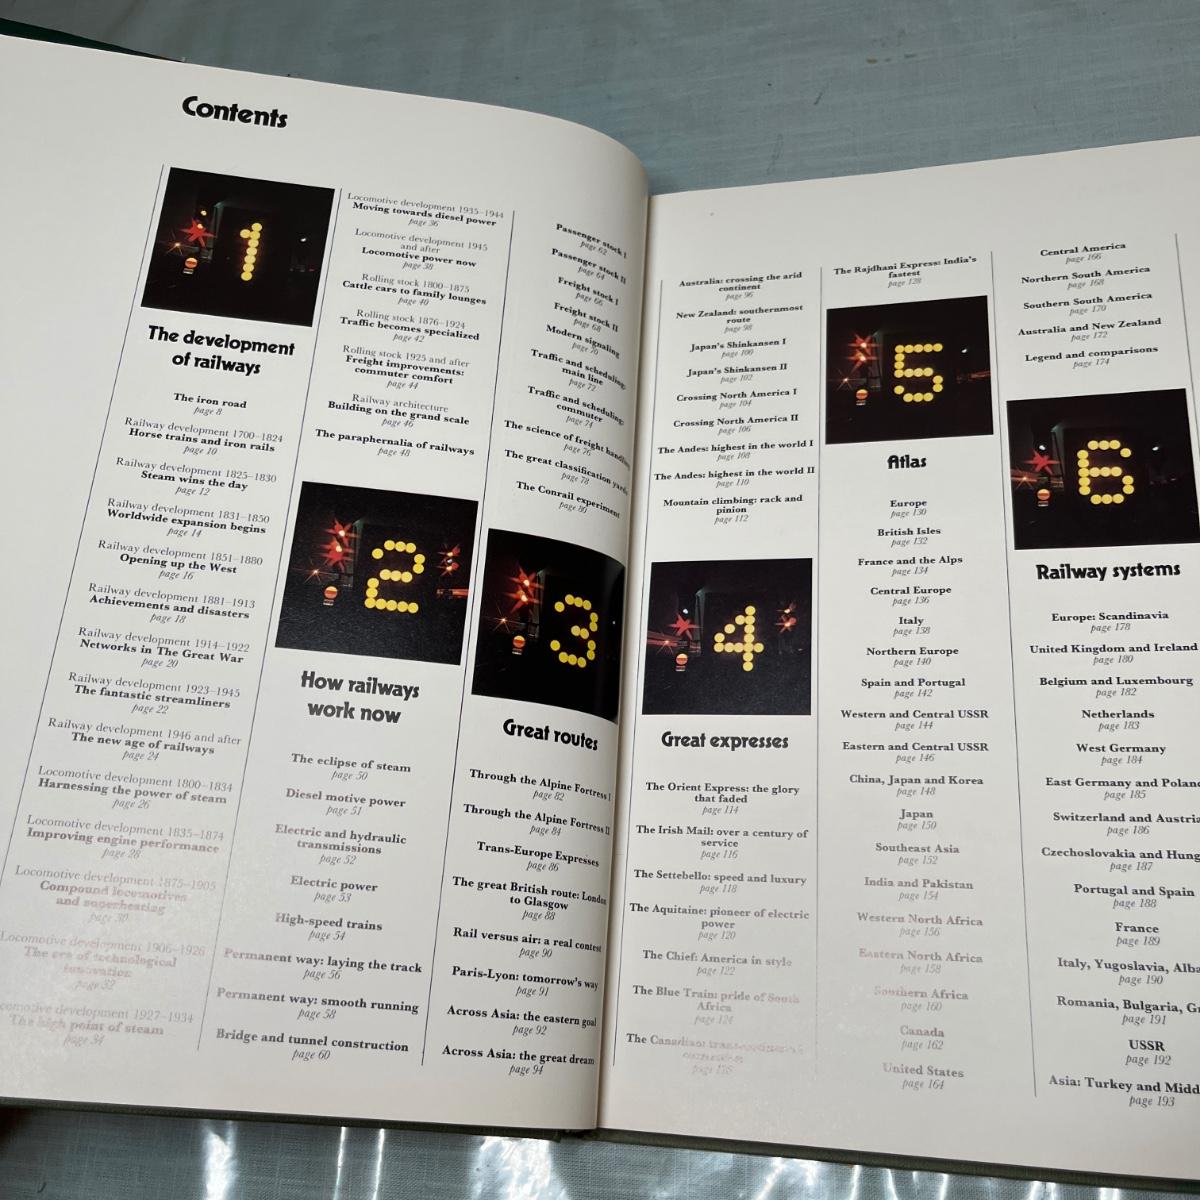 Contents
1
The development
of railways
The iron road
page 8
Railway development 1700–1824
Horse trains and iron rails
page 10
Railway development 1825–1830
Steam wins the day
page 12
Railway development 1831–1850
Worldwide expansion begins
page 14
Railway development 1851–1880
Opening up the West
page 16
Railway development 1881–1913
Achievements and disasters
page 18
Railway development 1914–1922
Networks in The Great War
page 20
Railway development 1923–1945
The fantastic streamliners
page 22
Railway development 1946 and after
The new age of railways
page 24
Locomotive development 1800–1834
Harnessing the power of steam
page 26
Locomotive development 1835–1874
Improving engine performance
page 28
Locomotive development 1875–1905
Compound locomotives
and superheating
page 30
Locomotive development 1906–1926
The era of technological
innovation
page 32
comotive development 1927–1934
The high point of steam
page 34
Locomotive development 1935–1944
Moving towards diesel power
page 36
Locomotive development 1945
and after
Locomotive power now
page 38
Rolling stock 1800–1875
Cattle cars to family lounges
page 40
Rolling stock 1876–1924
Traffic becomes specialized
page 42
Rolling stock 1925 and after
Freight improvements:
commuter comfort
page 44
Railway architecture
Building on the grand scale
page 46
The paraphernalia of railways
page 48
2
How railways
work now
The eclipse of steam
page 50
Diesel motive power
page 51
Electric and hydraulic
transmissions
page 52
Electric power
page 53
High-speed trains
page 54
Permanent way: laying the track
page 56
Permanent way: smooth running
page 58
Bridge and tunnel construction
page 60
Passenger stock I
page 62
Passenger stock II
page 64
Freight stock I
page 66
Freight stock II
page 68
Modern signaling
page 70
Traffic and scheduling:
main line
page 72
Traffic and scheduling:
commuter
page 74
The science of freight handling
page 76
The great classification yards
page 78
The Conrail experiment
page 80
3
Great routes
Through the Alpine Fortress I
page 82
Through the Alpine Fortress II
page 84
Trans-Europe Expresses
page 86
The great British route: London
to Glasgow
page 88
Rail versus air: a real contest
page 90
Paris-Lyon: tomorrow's way
page 91
Across Asia: the eastern goal
page 92
Across Asia: the great dream
page 94
Australia: crossing the arid
continent
page 96
New Zealand: southernmost
route
page 98
Japan's Shinkansen I
page 100
Japan's Shinkansen II
page 102
Crossing North America I
page 104
Crossing North America II
page 106
The Andes: highest in the world I
page 108
The Andes: highest in the world II
page 110
Mountain climbing: rack and
pinion
page 112
4
Great expresses
The Orient Express: the glory
that faded
page 114
The Irish Mail: over a century of
service
page 116
The Settebello: speed and luxury
page 118
The Aquitaine: pioneer of electric
power
page 120
The Chief: America in style
page 122
The Blue Train: pride of South
Africa
page 124
The Canadian:
page
The Rajdhani Express: India's
fastest
page 128
5
Atlas
Europe
page 130
British Isles
page 132
France and the Alps
page 134
Central Europe
page 136
Italy
page 138
Northern Europe
page 140
Spain and Portugal
page 142
Western and Central USSR
page 144
Eastern and Central USSR
page 146
China, Japan and Korea
page 148
Japan
page 150
Southeast Asia
page 152
India and Pakistan
page 154
Western North Africa
page 156
Eastern North Africa
page 158
Southern Africa
page 160
Canada
page 162
United States
page 164
Central America
page 166
Northern South America
page 168
Southern South America
page 170
Australia and New Zealand
page 172
Legend and comparisons
page 174
6
Railway systems
Europe: Scandinavia
page 178
United Kingdom and Ireland
page 180
Belgium and Luxembourg
page 182
Netherlands
page 183
West Germany
page 184
East Germany and Polan
page 185
Switzerland and Austria
page 186
Czechoslovakia and Hung
page 187
Portugal and Spain
page 188
France
page 189
Italy, Yugoslavia, Alba
page 190
Romania, Bulgaria, Gr
page 191
USSR
page 192
Asia: Turkey and Midd
page 193